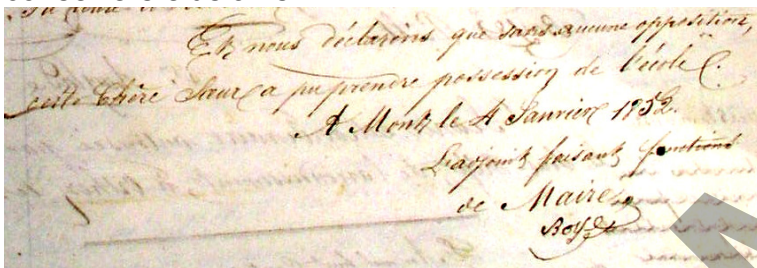 Et nous déclarons que sans aucune opposition,
cette Chère Sœur a pu prendre possession de l'école
A Mont le 4 Janvier 1852.
L'adjoint faisant fonctions
de Maire